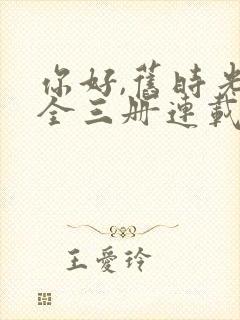 你好,舊時光
全三册連載
王愛玲